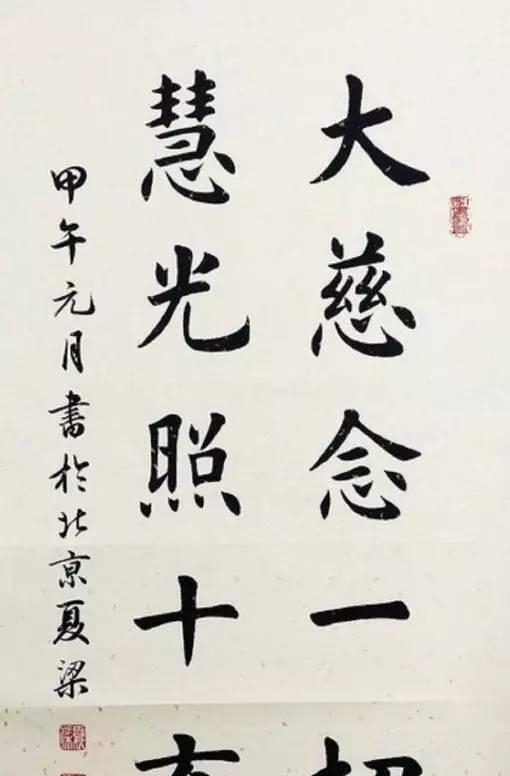 大慈念一切
慧光照十方
甲午元月書於北京夏梁